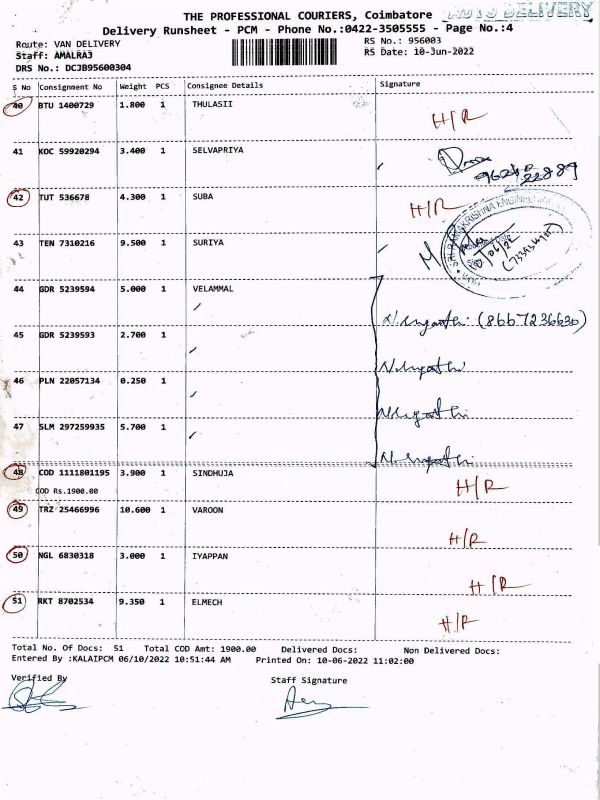 THE PROFESSIONAL COURIERS, Coimbatore AUTO DELIVERY
Delivery Runsheet - PCM - Phone No.:0422-3505555 - Page No.:4
Route: VAN DELIVERY RS No.: 956003
Staff: AMALRAJ RS Date: 10-Jun-2022
DRS No.: DCJB95600304
S No Consignment No Weight PCS Consignee Details Signature
40 BTU 1400729 1.800 1 THULASII H/R
41 KOC 59920294 3.400 1 SELVAPRIYA
42 TUT 536678 4.300 1 SUBA H/R
43 TEN 7310216 9.500 1 SURIYA
44 GDR 5239594 5.000 1 VELAMMAL
(8667236630)
45 GDR 5239593 2.700 1
46 PLN 22057134 0.250 1
47 SLM 297259935 5.700 1
48 COD 1111801195 3.900 1 SINDHUJA H/R
COD Rs.1900.00
49 TRZ 25466996 10.600 1 VAROON H/R
50 NGL 6830318 3.000 1 IYAPPAN H/R
51 RKT 8702534 9.350 1 ELMECH H/R
Total No. Of Docs: 51 Total COD Amt: 1900.00 Delivered Docs: Non Delivered Docs:
Entered By :KALAIPCM 06/10/2022 10:51:44 AM Printed On: 10-06-2022 11:02:00
Verified By Staff Signature